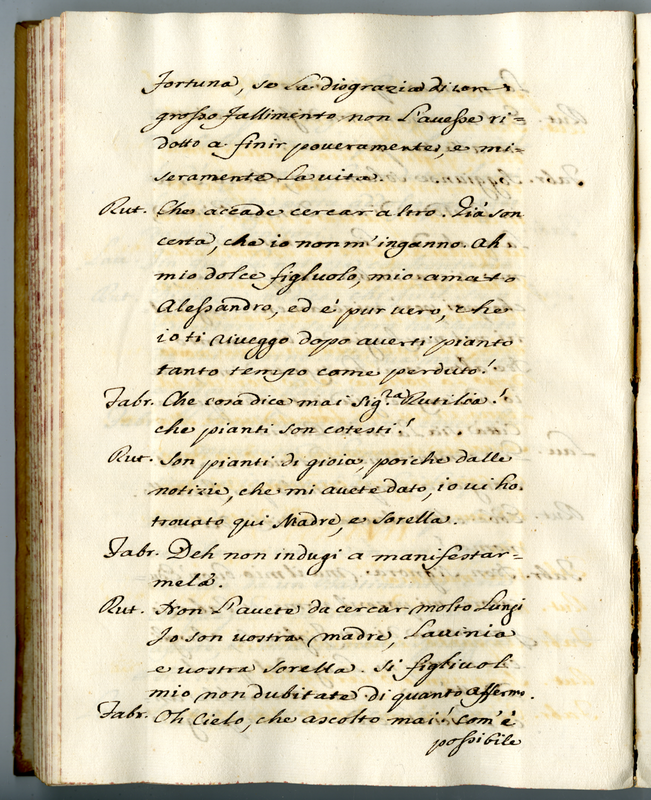 fortuna, se la disgrazia di un
grosso fallimento non l'avesse ri=
dotto a finir poveramente, e mi=
seramente la vita.
Rut. Che accade cercar altro. Già son
certa, che io non m'inganno. Ah
mio dolce figluolo, mio amato
Alessandro, ed è pur vero, che
io ti riveggo dopo averti pianto
tanto tempo come perduto!
Fabr. Che cosa dice mai Sig.ra Rutilia!
che pianti son cotesti!
Rut. Son pianti di gioia, poiche dalle
notizie, che mi avete dato, io vi ho
trovato qui Madre, e Sorella.
Fabr. Deh non indugi a manifestar=
mela.
Rut. Non l'avete da cercar molto lungi
Io son vostra madre, Lavinia
e vostra sorella. Si figlivolo
mio non dubitate di quanto affermo.
Fabr. Oh Cielo, che ascolto mai! com'è
possibile